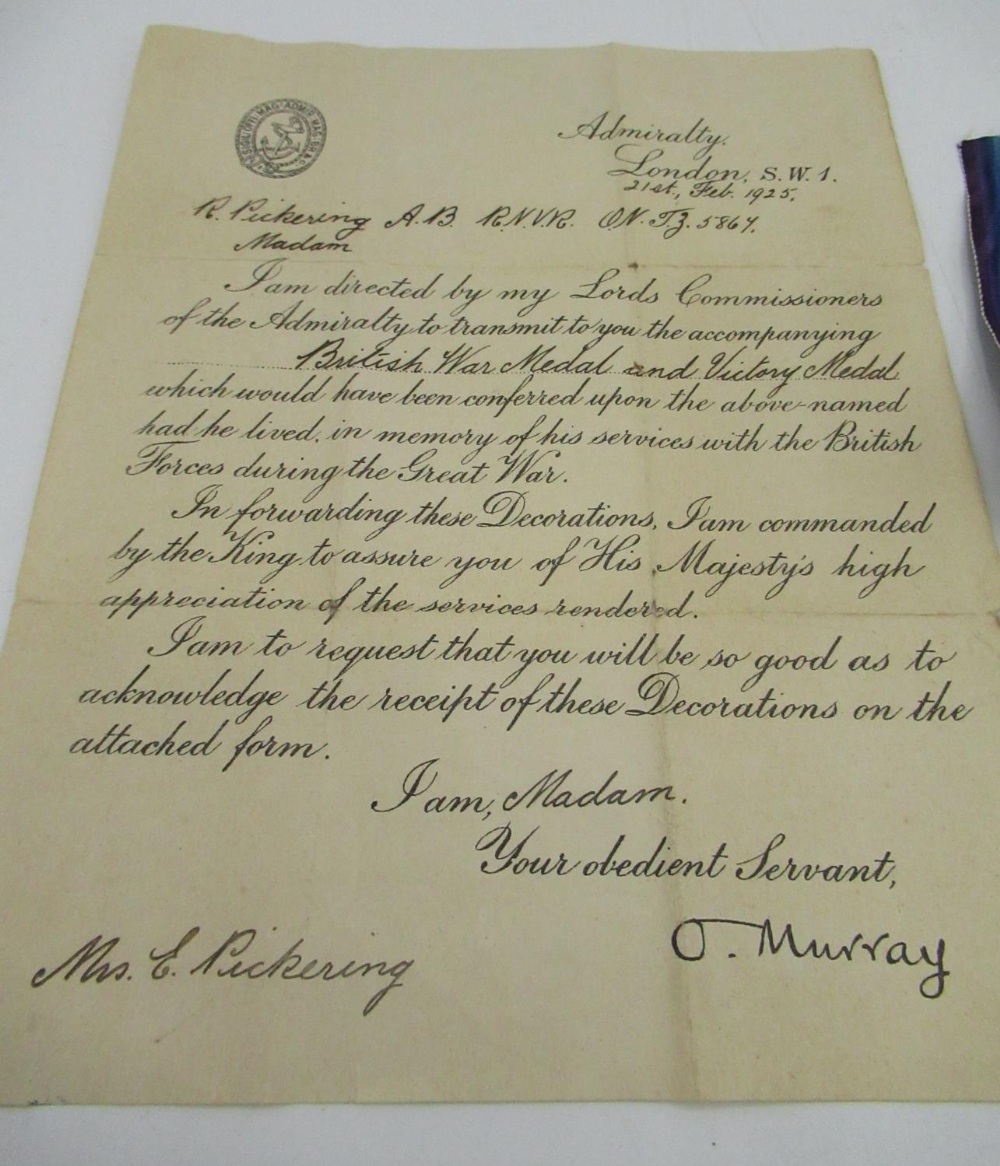 Admiralty,
London, S.W.1.
21st, Feb. 1925.
R. Pickering A.B. R.N.V.R. O.N. T.Z. 5867.
Madam
I am directed by my Lords Commissioners
of the Admiralty to transmit to you the accompanying
British War Medal and Victory Medal
which would have been conferred upon the above-named
had he lived, in memory of his services with the British
Forces during the Great War.
In forwarding these Decorations, I am commanded
by the King to assure you of His Majesty's high
appreciation of the services rendered.
I am to request that you will be so good as to
acknowledge the receipt of these Decorations on the
attached form.
I am, Madam.
Your obedient Servant,
O. Murray
Mrs. E. Pickering